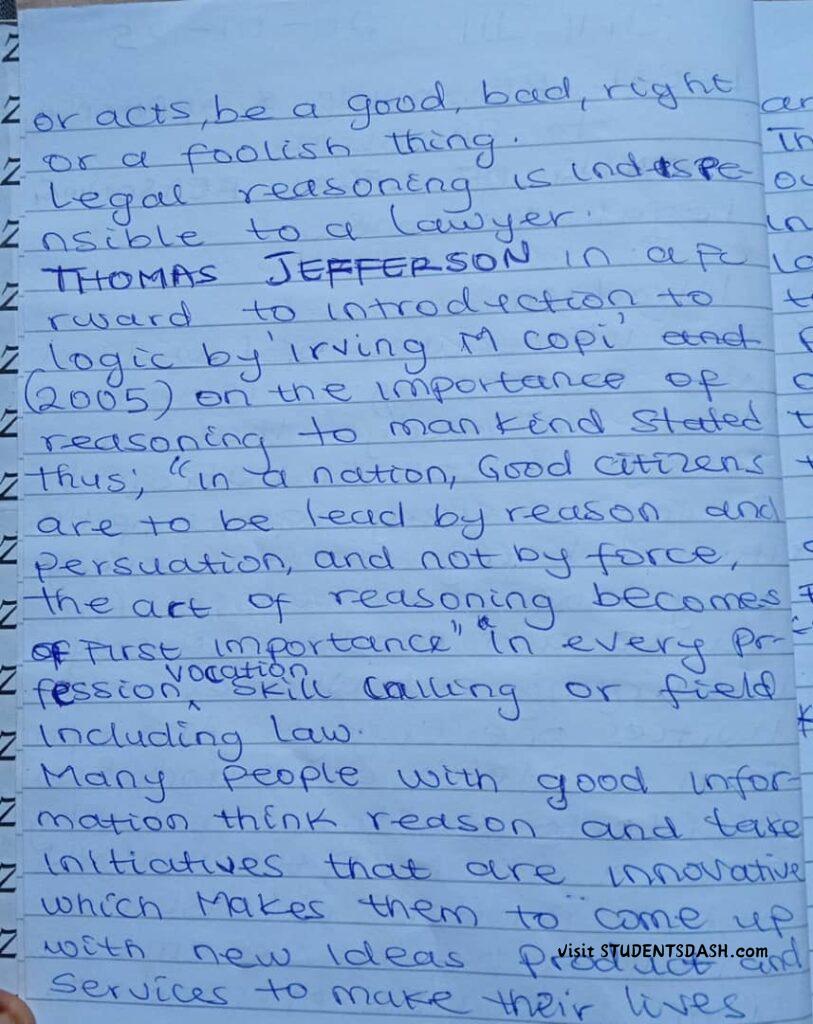 or acts, be a good, bad, right
or a foolish thing.
Legal reasoning is indispe-
nsible to a lawyer.
THOMAS JEFFERSON in a fo
rward to introduction to
logic by 'irving M copi' and
(2005) on the importance of
reasoning to mankind stated
thus; "in a nation, Good citizens
are to be lead by reason and
persuation, and not by force,
the act of reasoning becomes
of First importance" in every pr-
fession, vocation skill calling or field
including law.
Many people with good infor-
mation think reason and take
initiatives that are innovative
which makes them to come up
with new ideas product and
services to make their lives
visit STUDENTSDASH.com